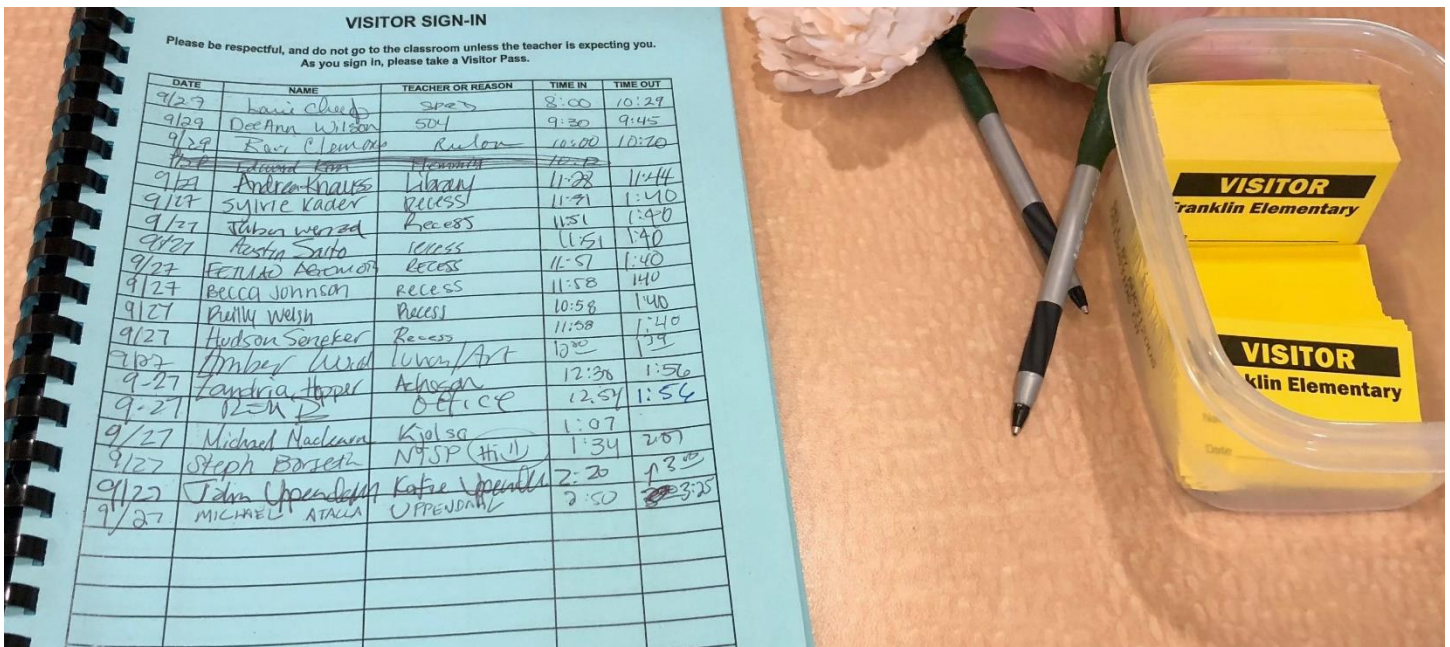 VISITOR SIGN-IN
Please be respectful, and do not go to the classroom unless the teacher is expecting you.
As you sign in, please take a Visitor Pass.
DATE NAME TEACHER OR REASON TIME IN TIME OUT
9/27 SPED 8:00 10:29
9/29 DeeAnn Wilson 504 9:30 9:45
9/29 10:00 10:20
Edward Kim
Andrea Knauss Library 11:28 11:44
9/27 Sylvie Kader Recess 1:40
9/27 Recess 11:51 1:40
9/27 Austin Saito recess 11:51 1:40
9/27 RECESS 11:51 1:40
9/27 Becca Johnson Recess 11:58 140
9/27 Reilly Welsh Recess 10:58 1:40
9/27 Hudson Seneker Recess 11:58 1:40
9/27 Amber Lunch/Art
9-27 Zandria Hopper 12:38 1:56
9-27 Office 12:54
9/27 Michael Kjolso 1:07
9/27 Steph Borseth (Hill) 1:34 2:07
9/27 John Katie 2:20 3:00
9/27 MICHAEL ATALLA UPPENDAHL 2:50 3:25
VISITOR
Franklin Elementary
VISITOR
klin Elementary
Date